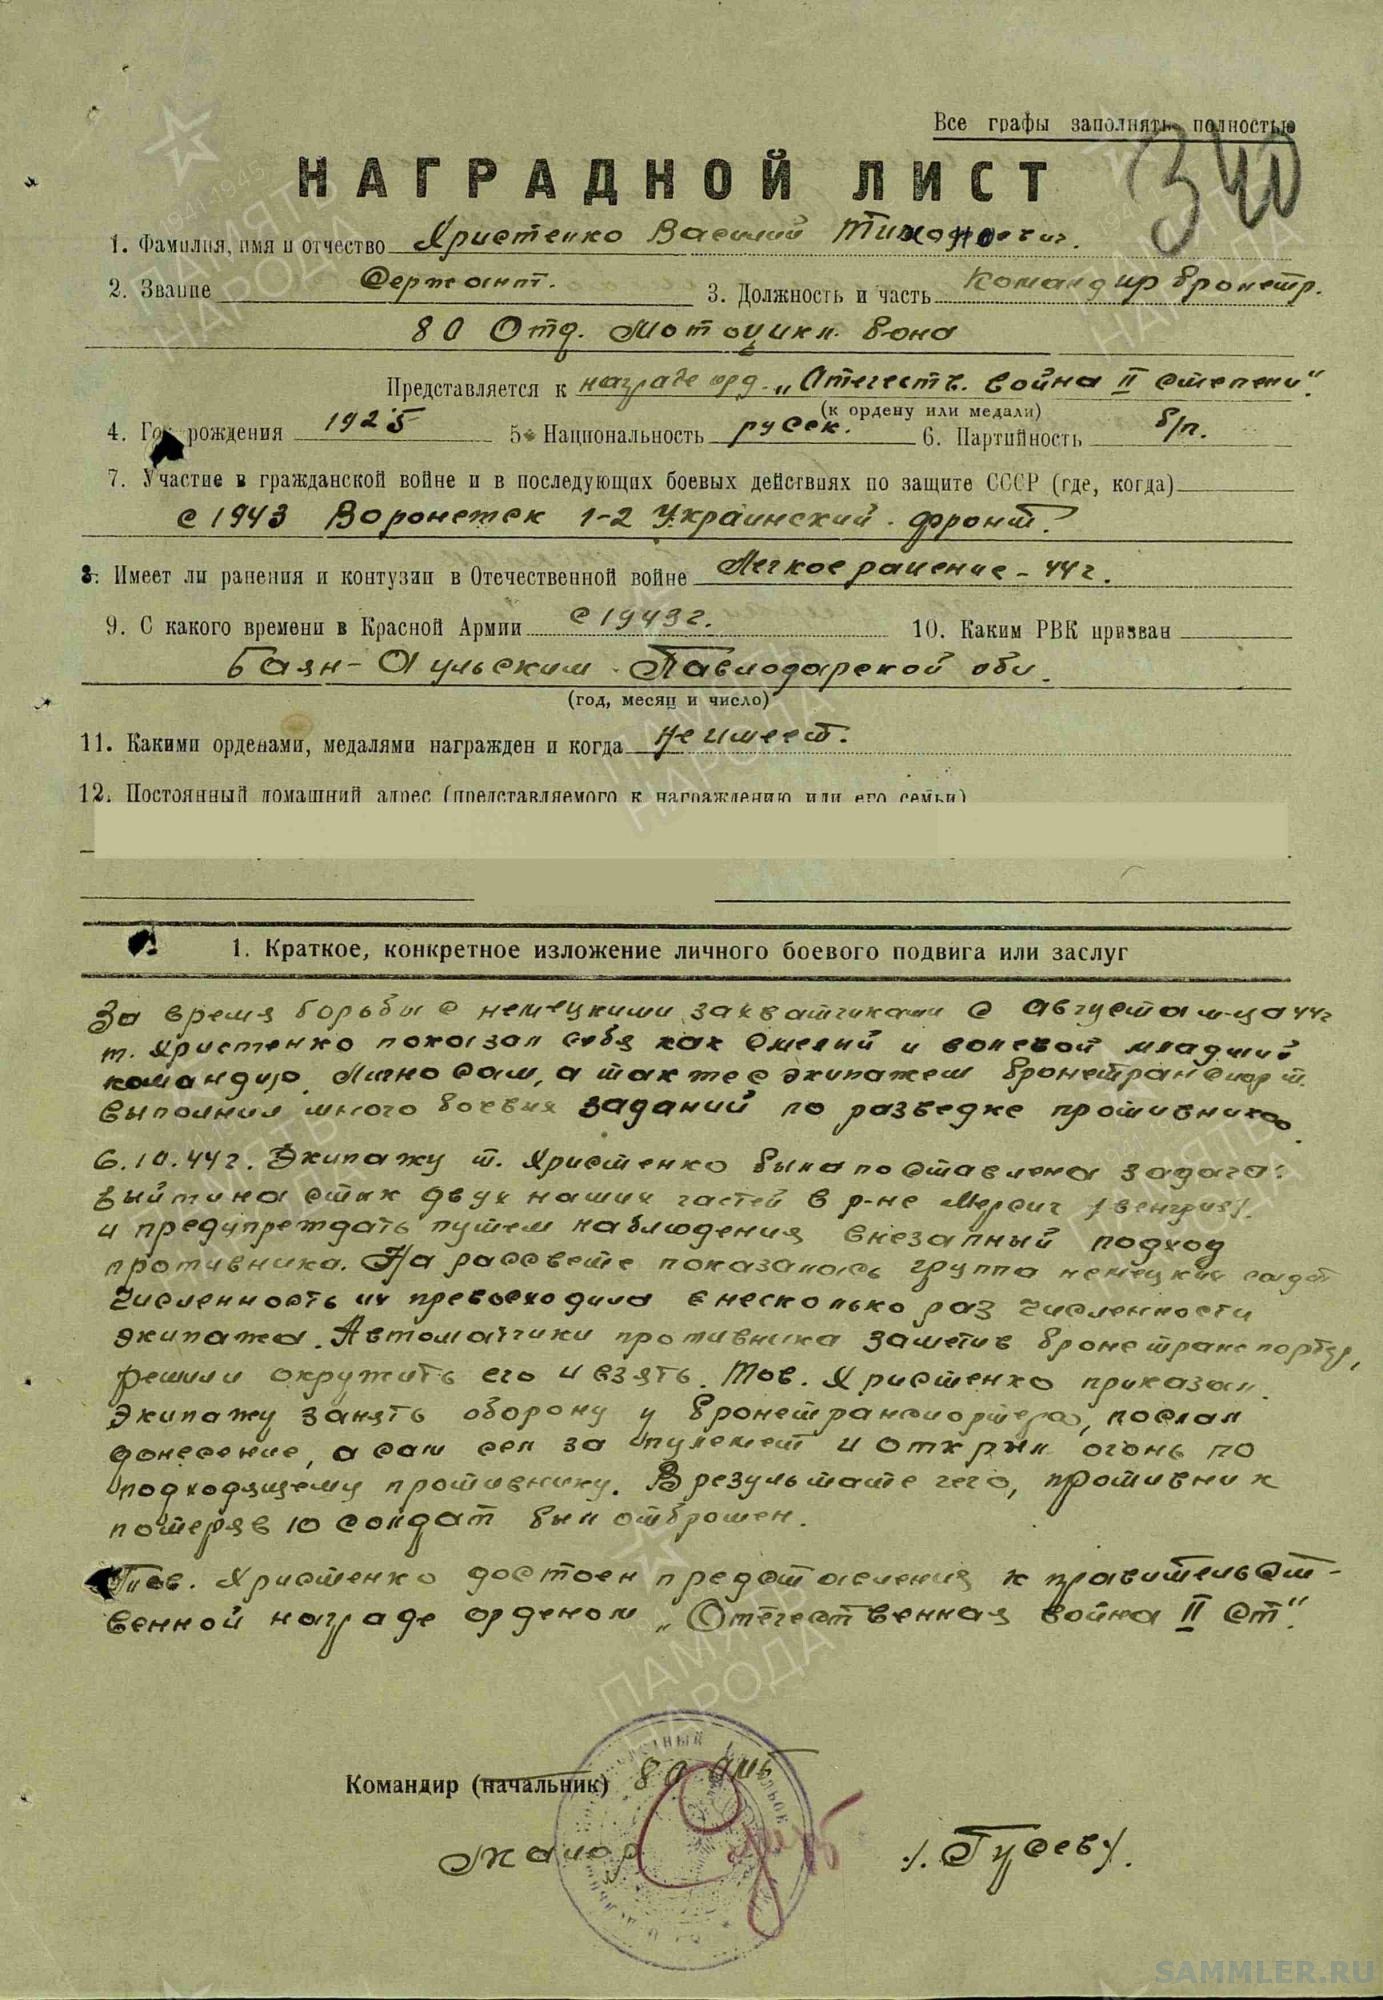 Все графы заполнять полностью
340
НАГРАДНОЙ ЛИСТ
1. Фамилия, имя и отчество Христенко Василий Тихонович.
2. Звание Сержант. 3. Должность и часть Командир бронетр.
80 Отд. Мотоцикл. б-она
Представляется к награде орд. „Отечеств. война II степени".
(к ордену или медали)
4. Год рождения 1925 5. Национальность русск. 6. Партийность б/п.
7. Участие в гражданской войне и в последующих боевых действиях по защите СССР (где, когда)
с 1943 Воронежск 1-2 Украинский фронт.
8. Имеет ли ранения и контузии в Отечественной войне Легкое ранение - 44 г.
9. С какого времени в Красной Армии с 1943 г. 10. Каким РВК призван
Баян-Аульским Павлодарской обл.
(год, месяц и число)
11. Какими орденами, медалями награжден и когда не имеет.
12. Постоянный домашний адрес (представляемого к награждению или его семьи)
1. Краткое, конкретное изложение личного боевого подвига или заслуг
За время борьбы с немецкими захватчиками с августа м-ца 44 г
т. Христенко показал себя как смелый и волевой младший
командир. Лично сам, а так же с экипажем бронетранспорт.
выполнил много боевых заданий по разведке противника.
6.10.44 г. Экипажу т. Христенко была поставлена задача:
выйти на стык двух наших частей в р-не /венгрия/.
и предупреждать путем наблюдения внезапный подход
противника. На рассвете показалась группа немецких солдат
численность их превосходила в несколько раз численности
экипажа. Автоматчики противника заметив бронетранспортер,
решили окружить его и взять. Тов. Христенко приказал
экипажу занять оборону у бронетранспортера, послал
донесение, а сам сел за пулемет и открыл огонь по
подходящему противнику. В результате чего, противник
потеряв 10 солдат был отброшен.
Тов. Христенко достоен представления к правительст-
венной награде орденом „Отечественная война II ст".
Командир (начальник) 80 омб
майор /. Гусев/.
ПАМЯТЬ НАРОДА
1941-1945
SAMMLER.RU